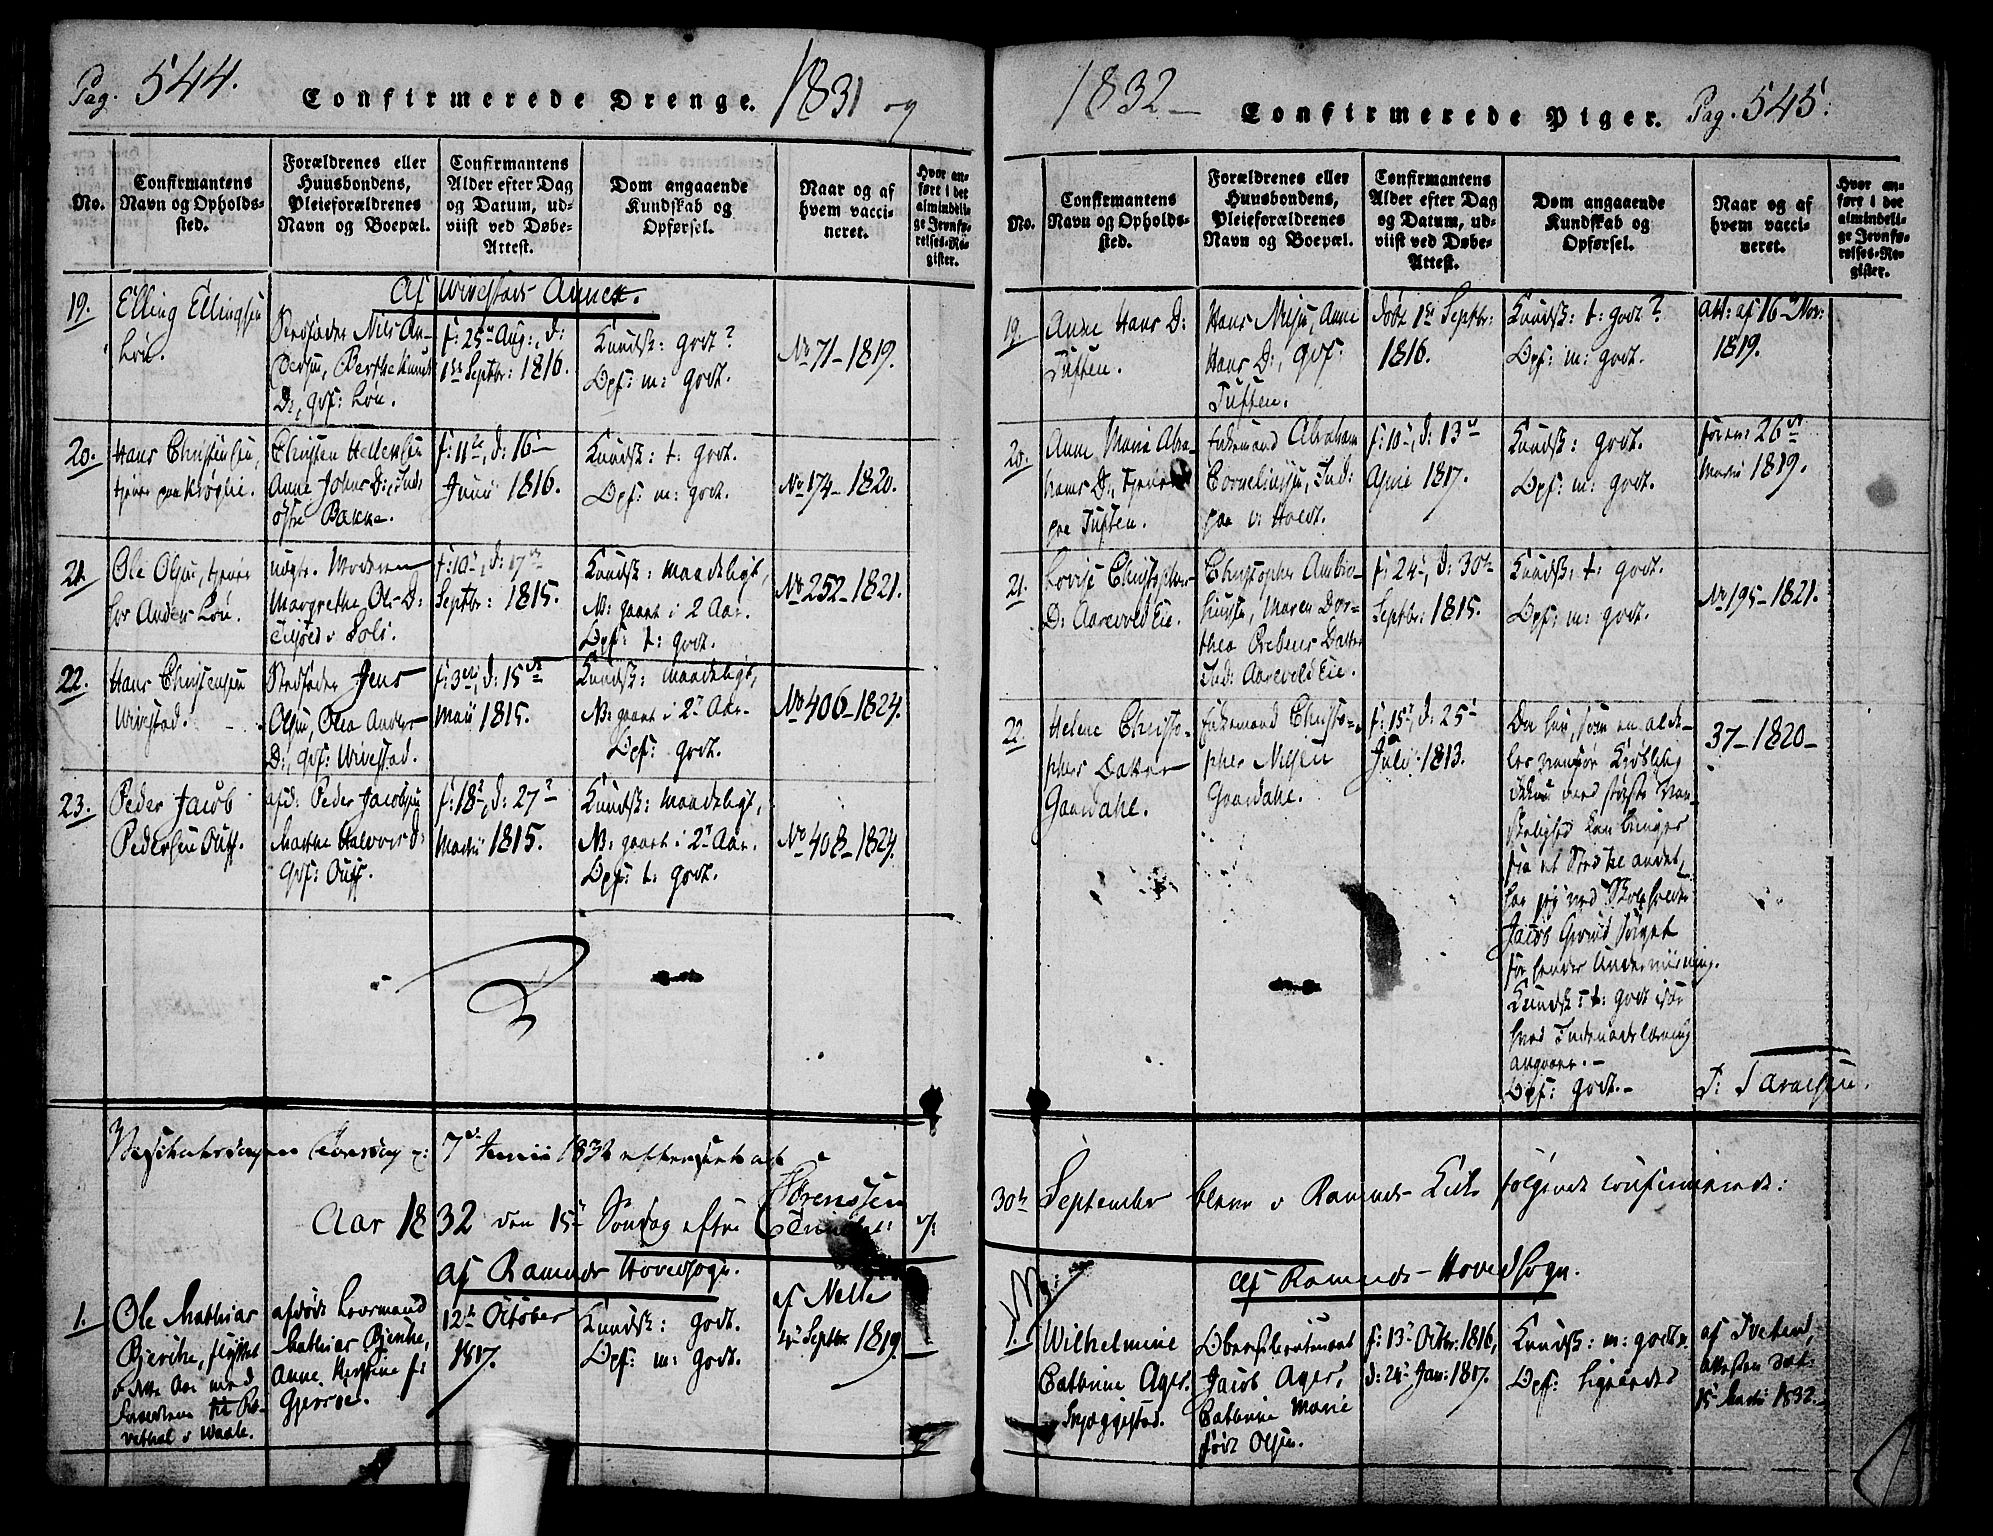 Pag. 544.
Confirmerede Drenge.
1831 og
No.
Confirmantens
Navn og Opholds-
sted.
Forældrenes eller
Huusbondens,
Pleieforældrenes
Navn og Boepæl.
Confirmantens
Alder efter Dag
og Datum, ud-
viist ved Døbe-
Attest.
Dom angaaende
Kundskab og
Opførsel.
Naar og af
hvem vacci-
neret.
Hvor an-
ført i det
almindeli-
ge Jevnfø-
relses-Re-
gister.
Af Wivestads Annex.
19.
Elling Ellingsen
Løu.
Stedfader Nils An-
dersen, Berthe Knuds
D:, Gdf: Løu.
f: 25de Aug:, d:
1ste Septbr: 1816.
Kundsk: godt?
Opf: m: godt.
No 71-1819.
20.
Hans Christensen,
tjener paa Krøglie.
Christen Hellesen
Anne Johns D:, Ind:
østre Bakke.
f: 11te, d: 16-
Junii 1816.
Kundsk: t: godt.
Opf: m: godt.
No 174-1820.
21.
Ole Olsen, tjener
hos Anders Løu.
uægte. Moderen
Margrethe Ols D:
Soli.
f: 10-, d: 17de
Septbr: 1815.
Kundsk: maadeligt,
NB: gaaet i 2 Aar.
Opf: t: godt.
No 252-1821.
22.
Hans Christensen
Wivestad.
Stedfader Jens
Olsen, Olea Anders
D:, Gdf: Wivestad.
f: 3die, d: 15de
Maii 1815.
Kundsk: maadeligt,
NB: gaaet i 2de Aar.
Opf: godt.
No 406-1824.
23.
Peder Jacob
Pedersen Duff.
afd: Peder Jacobsen
Marthe Halvors D:
Gdf: Duff.
f: 18de, d: 27de
Martii 1815.
Kundsk: maadeligt,
NB: gaaet i 2de Aar.
Opf: t: godt.
No 408-1824.
Torsdag 7de Junii 1832
Sørenssen
Aar 1832 den 15de Søndag efter Trinitat:
af Ramnæs Hovedsogn.
1.
Ole Mathias
Bjerche, flyttet
i dette Aar med
Forældrene til
i Waale.
afdøde Leermand
Mathias Bjerche,
Anne Kirstine f:
12te October
1817.
Kundsk: godt.
Opf: m: godt.
af Nelle
Septbr 1819.
1832-
Confirmerede Piger.
Pag. 545.
No.
Confirmantens
Navn og Opholds-
sted.
Forældrenes eller
Huusbondens,
Pleieforældrenes
Navn og Boepæl.
Confirmantens
Alder efter Dag
og Datum, ud-
viist ved Døbe-
Attest.
Dom angaaende
Kundskab og
Opførsel.
Naar og af
hvem vacci-
neret.
Hvor an-
ført i det
almindeli-
ge Jevnfø-
relses-Re-
gister.
19.
Anne Hans D:
Tuften.
Hans Nilsen, Anne
Hans D:, Gdf:
Tuften.
døbt 1ste Septbr:
1816.
Kundsk: t: godt?
Opf: m: godt.
Att: af 16de Nov:
1819.
20.
Anne Maria Abra-
hams D:, tjener
paa Tuften.
Enkemand Abraham
Corneliusen, Ind:
paa v: Holdt.
f: 10-, d: 13de
April 1817.
Kundsk: godt.
Opf: m: godt.
26de
Martii 1819.
21.
Lovise Christophers
D: Aarevold Eie.
Christopher Ambio-
, Maren Dor-
thea Prebens Datter
Ind: Aarevold Eie.
f: 24-, d: 30te
Septbr: 1815.
Kundsk: t: godt.
Opf: m: godt.
No 195-1821.
22.
Helene Christo-
phers Datter
Gaasdahl.
Enkemand Christo-
pher Nilsen
Gaasdahl.
f: 15-, d: 25-
Julii 1813.
Da hun, som en alde-
les
med største Van-
skelighed kan bringes
fra et Sted til andet,
har jeg ved Skoleholder
Jacob søget
for hendes Underviisning.
Kundsk: t: godt især
hvad Indenadslæsning
angaaer.-
Opf: godt.-
37-1820-
30te September bleve i Ramnæs Kirke følgende confirmerede:
af Ramnæs Hovedsogn.
1.
Wilhelmine
Cathrine Ager.
Skjæggestad.
Oberstlieutenant
Jacob Ager,
Cathrine Marie
født Olsen.
f: 13de Octbr: 1816,
d: 24- Jan: 1817.
Kundsk: m: godt.
Opf: ligeledes
af Tveten,
Attesten dat:
15 Martii 1832.